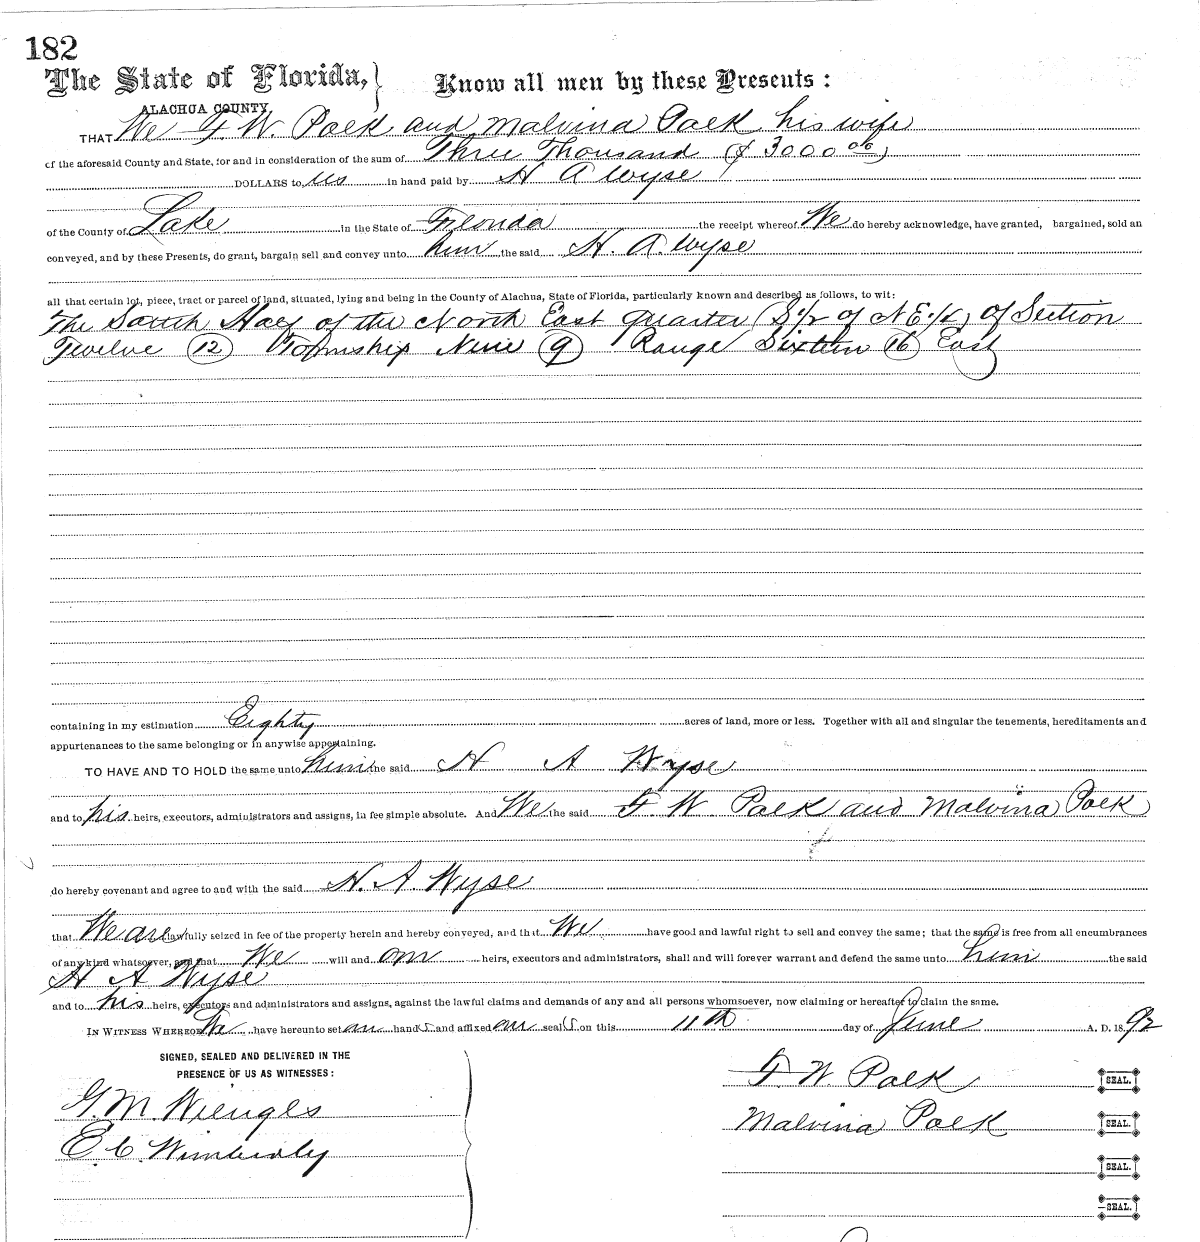 182
The State of Florida, } Know all men by these Presents :
ALACHUA COUNTY,
THAT We F. W. Polk and Malvina Polk his wife
of the aforesaid County and State, for and in consideration of the sum of Three Thousand ($ 3000 00)
DOLLARS to us in hand paid by H A Wyse
of the County of Lake in the State of Florida the receipt whereof We do hereby acknowledge, have granted, bargained, sold an
conveyed, and by these Presents, do grant, bargain sell and convey unto him the said H. A. Wyse
all that certain lot, piece, tract or parcel of land, situated, lying and being in the County of Alachua, State of Florida, particularly known and described as follows, to wit:
The South Half of the North East Quarter (S.1/2 of N E.1/4) of Section
Twelve (12) Township Nine (9) Range Sixteen (16) East
containing in my estimation Eighty acres of land, more or less. Together with all and singular the tenements, hereditaments and
appurtenances to the same belonging or in anywise appertaining.
TO HAVE AND TO HOLD the same unto him the said H A Wyse
and to his heirs, executors, administrators and assigns, in fee simple absolute. And We the said F. W. Polk and Malvina Polk
do hereby covenant and agree to and with the said H. A. Wyse
that We are lawfully seized in fee of the property herein and hereby conveyed, and that We have good and lawful right to sell and convey the same; that the same is free from all encumbrances
of any kind whatsoever, and that We will and our heirs, executors and administrators, shall and will forever warrant and defend the same unto him the said
H A Wyse
and to his heirs, executors and administrators and assigns, against the lawful claims and demands of any and all persons whomsoever, now claiming or hereafter to claim the same.
IN WITNESS WHEREOF We have hereunto set our hands and affixed our seals on this 11th day of June A. D. 1892
SIGNED, SEALED AND DELIVERED IN THE
PRESENCE OF US AS WITNESSES :
F. W. Polk SEAL.
G. M. Wienges
Malvina Polk SEAL.
E. C. Wimberly
SEAL.
SEAL.